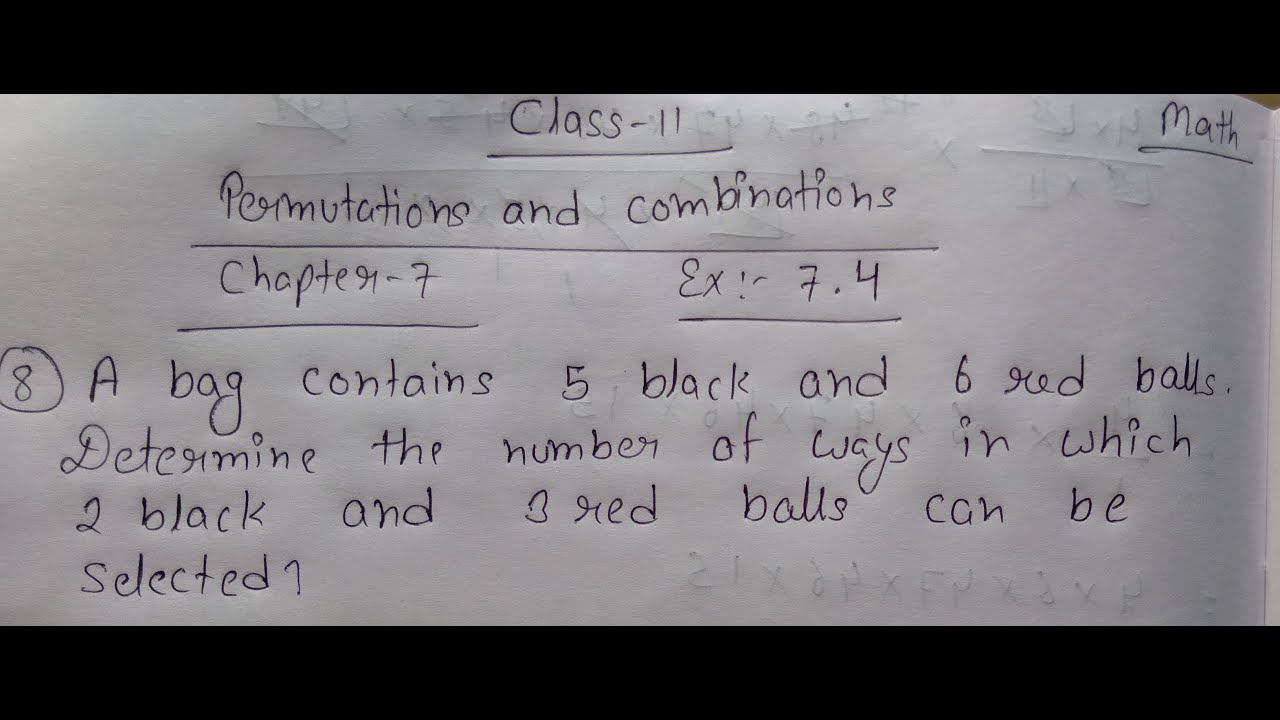 Class-11
Math
Permutations and combinations
Chapter-7 Ex:- 7.4
8 A bag contains 5 black and 6 red balls.
Determine the number of ways in which
2 black and 3 red balls can be
selected?